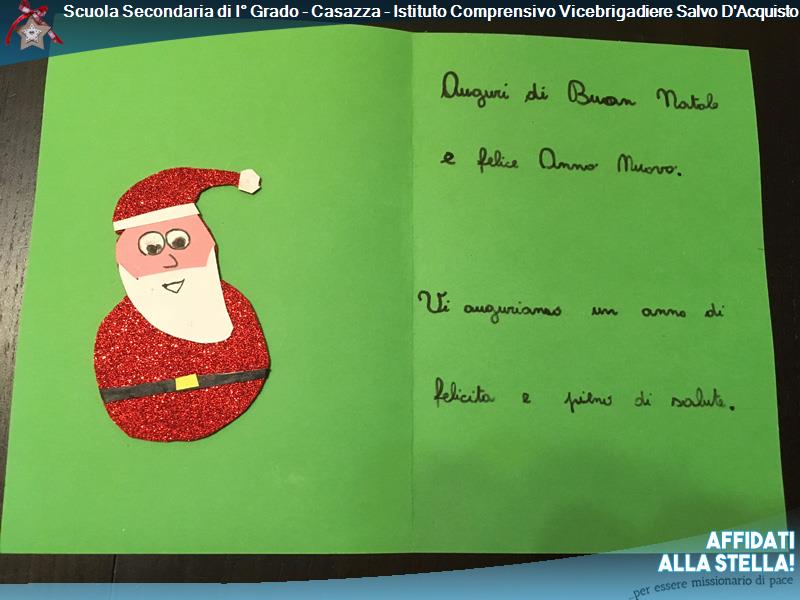 Scuola Secondaria di I° Grado - Casazza - Istituto Comprensivo Vicebrigadiere Salvo D'Acquisto
Auguri di Buon Natale
e felice Anno Nuovo.
Vi auguriamo un anno di
felicita e pieno di salute.
AFFIDATI
ALLA STELLA!
...per essere missionario di pace